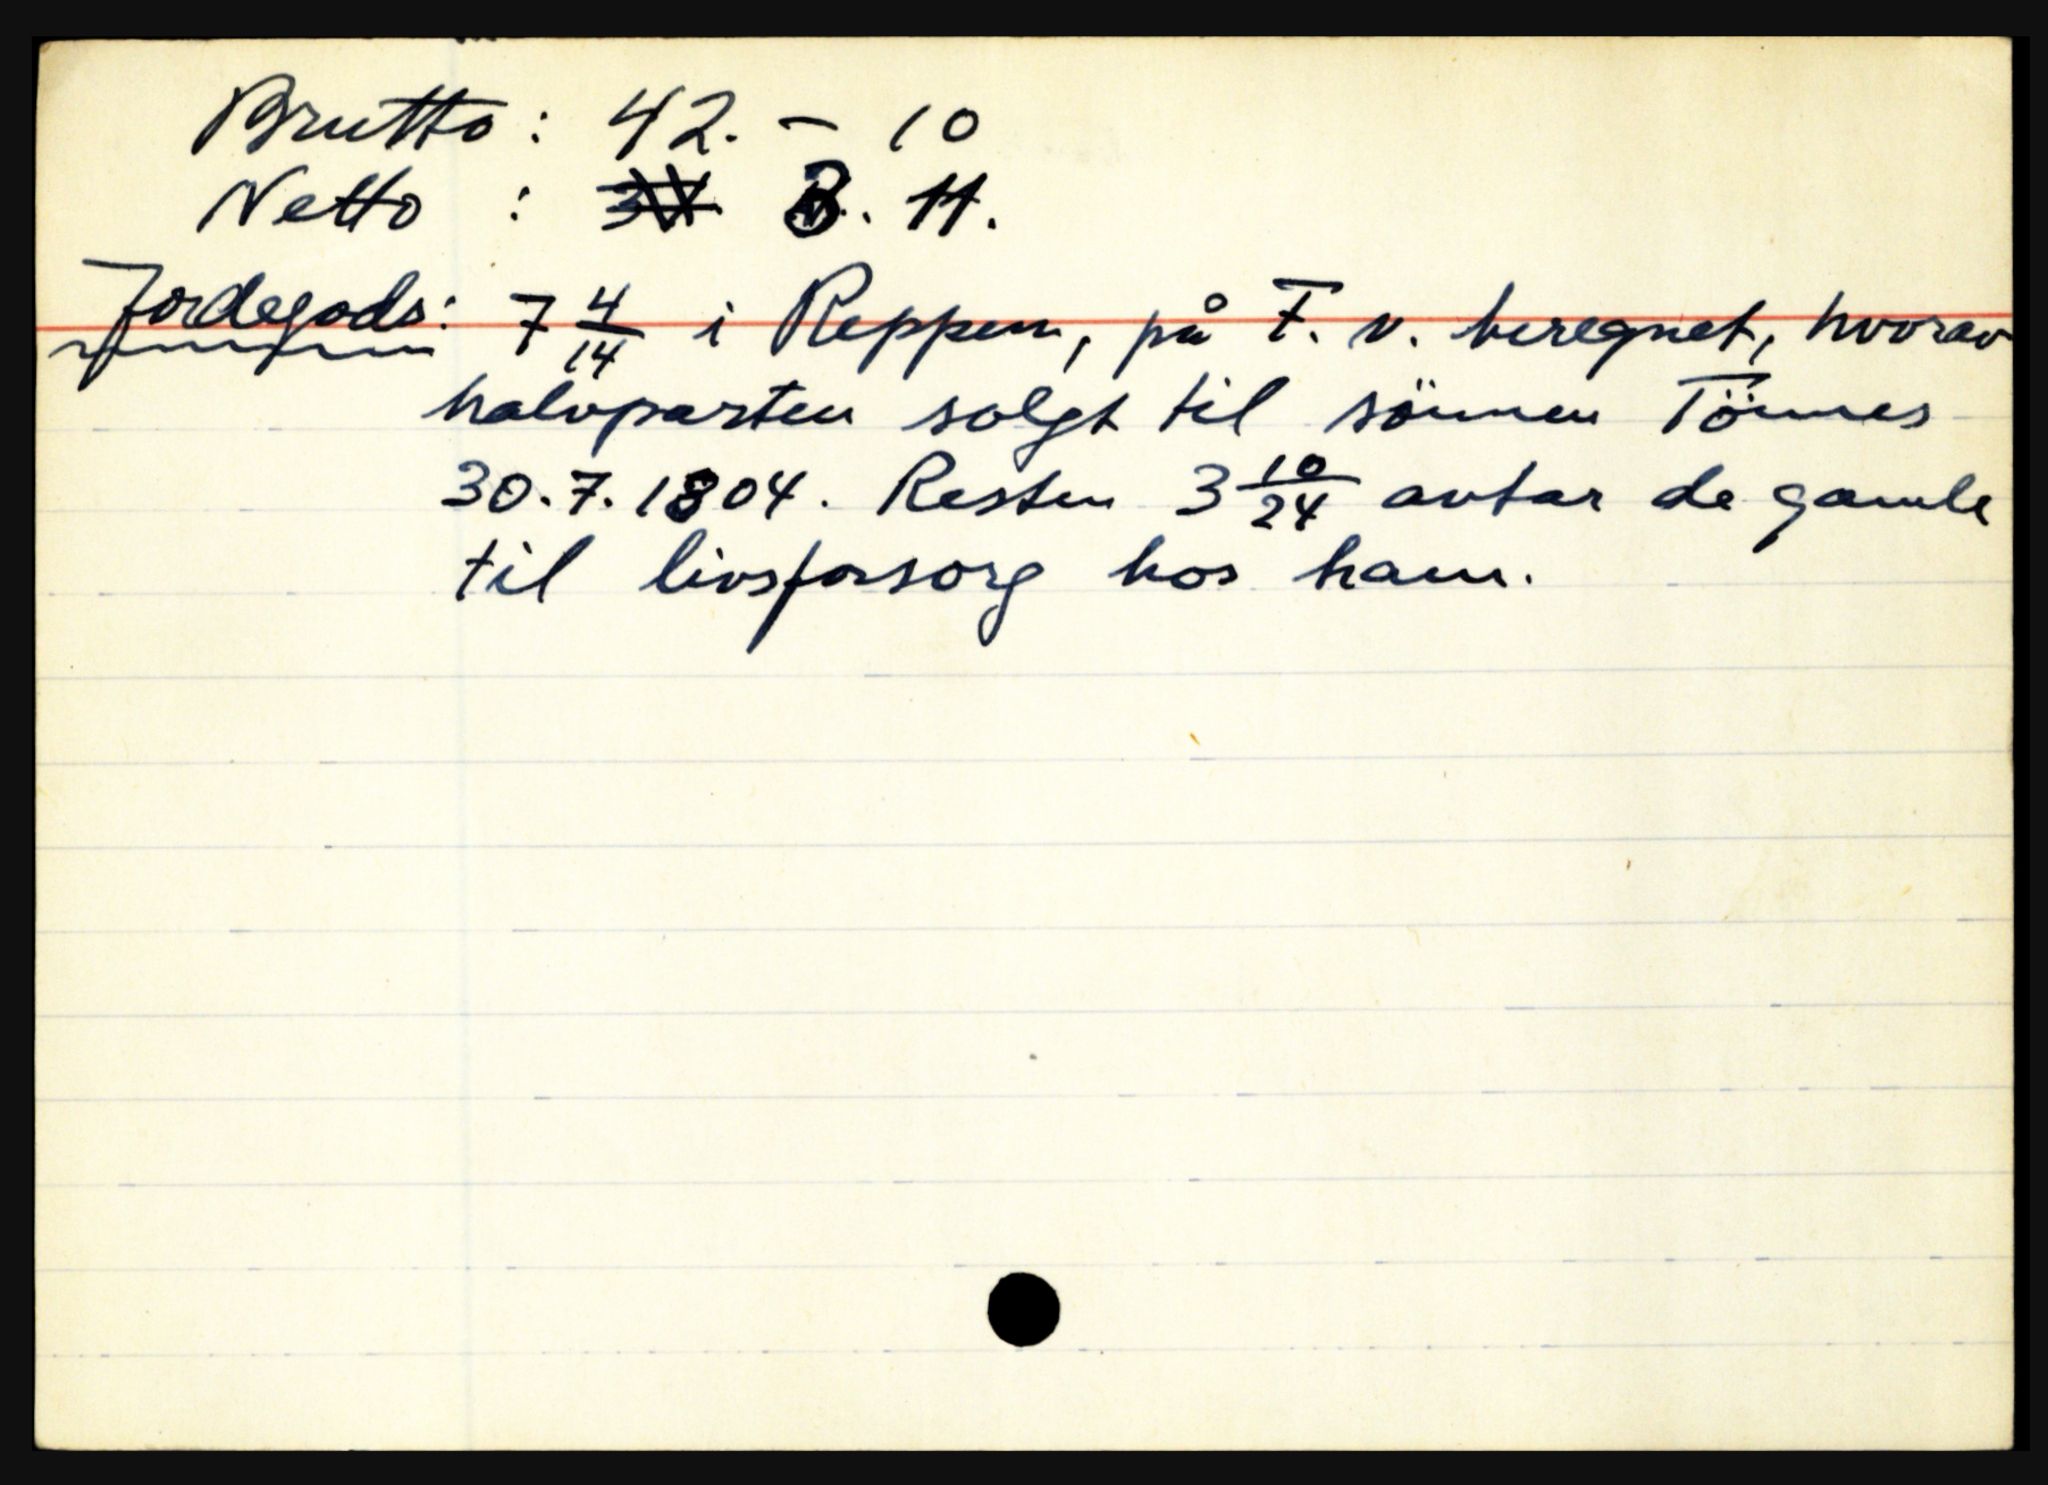 Brutto: 42. – 10
Netto : 3. 11.
Jordegods: 7 4/14 i Reppen, på F. v. beregnet, hvorav
halvparten solgt til sönnen Tönnes
30.7.1804. Resten 3 10/24 avtar de gamle
til livsforsorg hos ham.